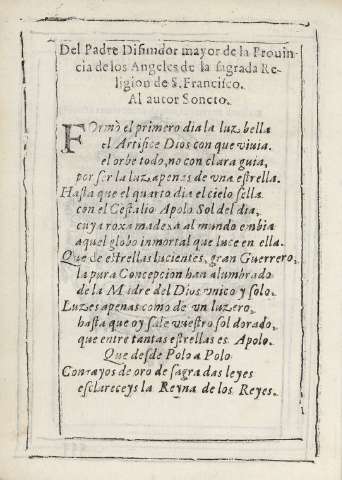 Del Padre Difinidor mayor de la Prouin-
cia de los Angeles de la sagrada Re-
ligion de S. Francisco.
Al autor Soneto.
FOrmò el primero dia la luz bella
el Artifice Dios con que viuia.
el orbe todo, no con clara guia,
por ser la luz apenas de vna estrella.
Hasta que el quarto dia el cielo sella
con el Cestalio Apolo Sol del dia,
cuya roxa madexa al mundo embia
aquel globo inmortal que luce en ella.
Que de estrellas lucientes, gran Guerrero,
la pura Concepcion han alumbrado
de la Madre del Dios vnico y solo.
Luzes apenas como de vn luzero,
hasta que oy sale vuestro sol dorado,
que entre tantas estrellas es Apolo.
Que desde Polo a Polo
Con rayos de oro de sagradas leyes
esclareceys la Reyna de los Reyes.